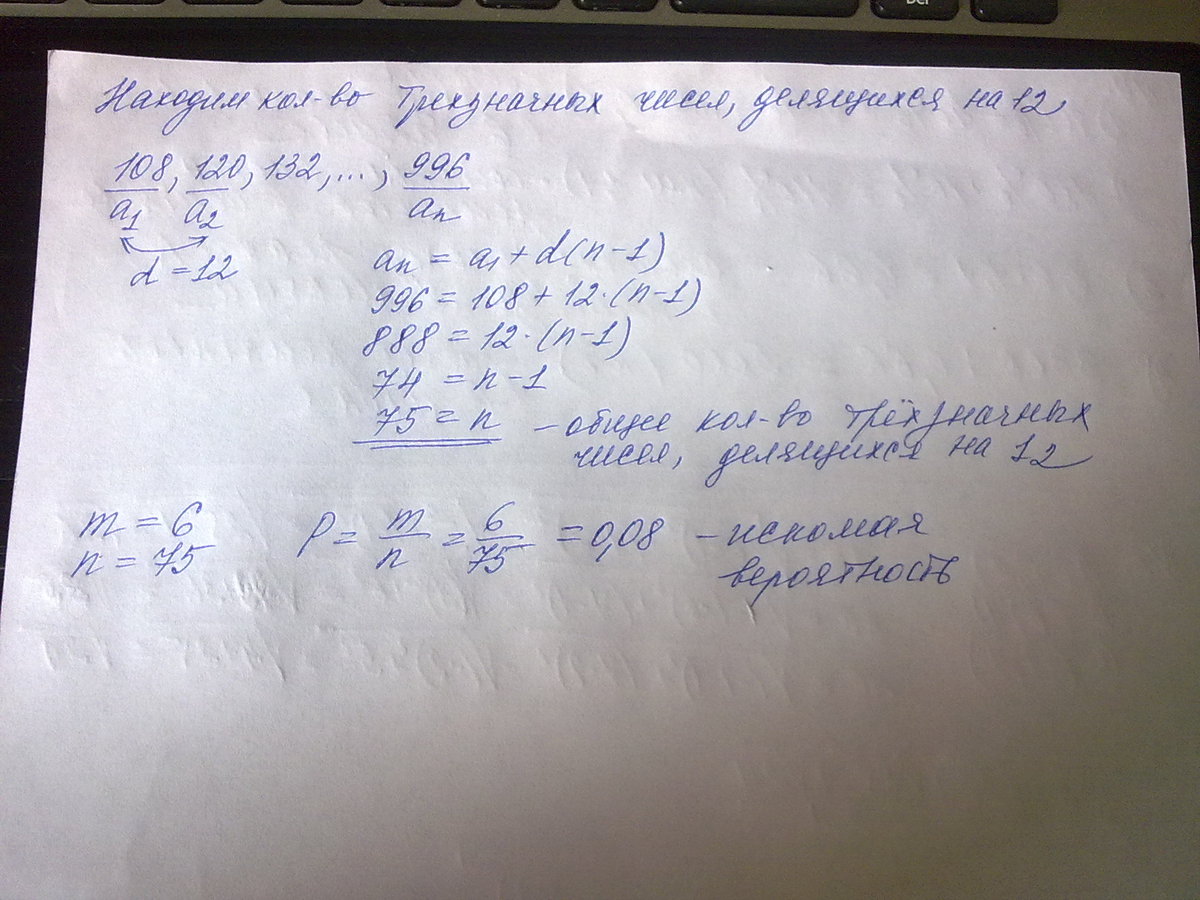 Находим кол-во трехзначных чисел, делящихся на 12
108, 120, 132, ..., 996
a1 a2 an
d = 12
an = a1 + d(n-1)
996 = 108 + 12·(n-1)
888 = 12·(n-1)
74 = n-1
75 = n - общее кол-во трёхзначных
чисел, делящихся на 12
m = 6
n = 75
P = m/n = 6/75 = 0,08 - искомая
вероятность